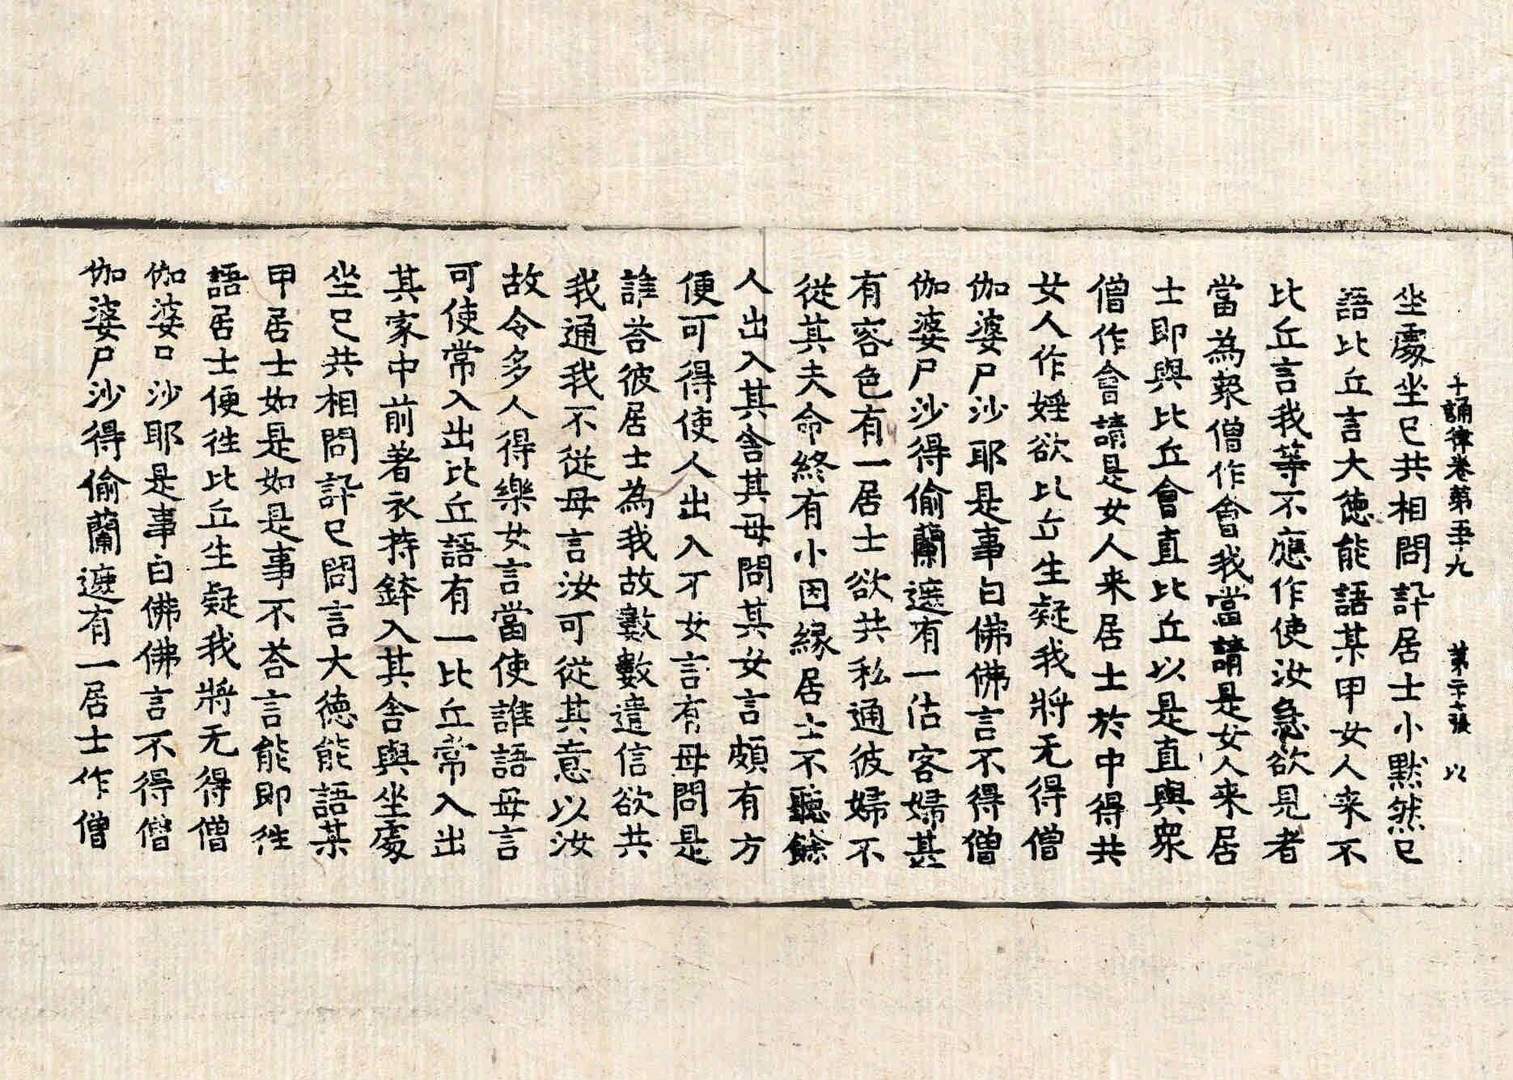 十誦律卷第五十九 第二十七張 以
坐處坐已共相問訊居士小默然已
語比丘言大德能語某甲女人来不
比丘言我等不應作使汝急欲見者
當為衆僧作會我當請是女人来居
士即與比丘會直比丘以是直與衆
僧作會請是女人来居士於中得共
女人作婬欲比丘生疑我將无得僧
伽婆尸沙耶是事白佛佛言不得僧
伽婆尸沙得偷蘭遮有一估客婦甚
有容色有一居士欲共私通彼婦不
從其夫命終有小因緣居士不聽餘
人出入其舍其母問其女言頗有方
便可得使人出入不女言有母問是
誰荅彼居士為我故數數遣信欲共
我通我不從母言汝可從其意以汝
故令多人得樂女言當使誰語母言
可使常入出比丘語有一比丘常入出
其家中前著衣持鉢入其舍與坐處
坐已共相問訊已問言大德能語某
甲居士如是如是事不荅言能即徃
語居士便徃比丘生疑我將无得僧
伽婆尸沙耶是事白佛佛言不得僧
伽婆尸沙得偷蘭遮有一居士作僧